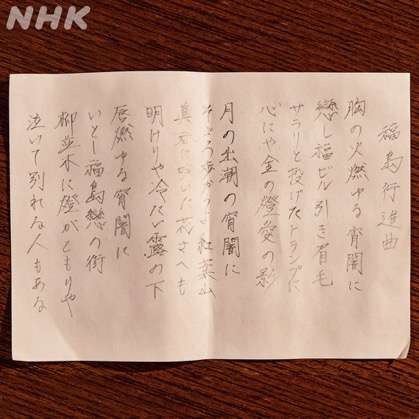 NHK
福島行進曲
胸の火燃ゆる宵闇に
戀し福ビル引き眉毛
サラリと投げたトランプに
心にや金の燈愛の影
月の出潮の宵闇に
そぞろ歩きの紅葉山
真赤に咲いた花さへも
明けりや冷たい露の下
唇燃ゆる宵闇に
いとし福島戀の街
柳並木に燈がともりや
泣いて別れる人もある